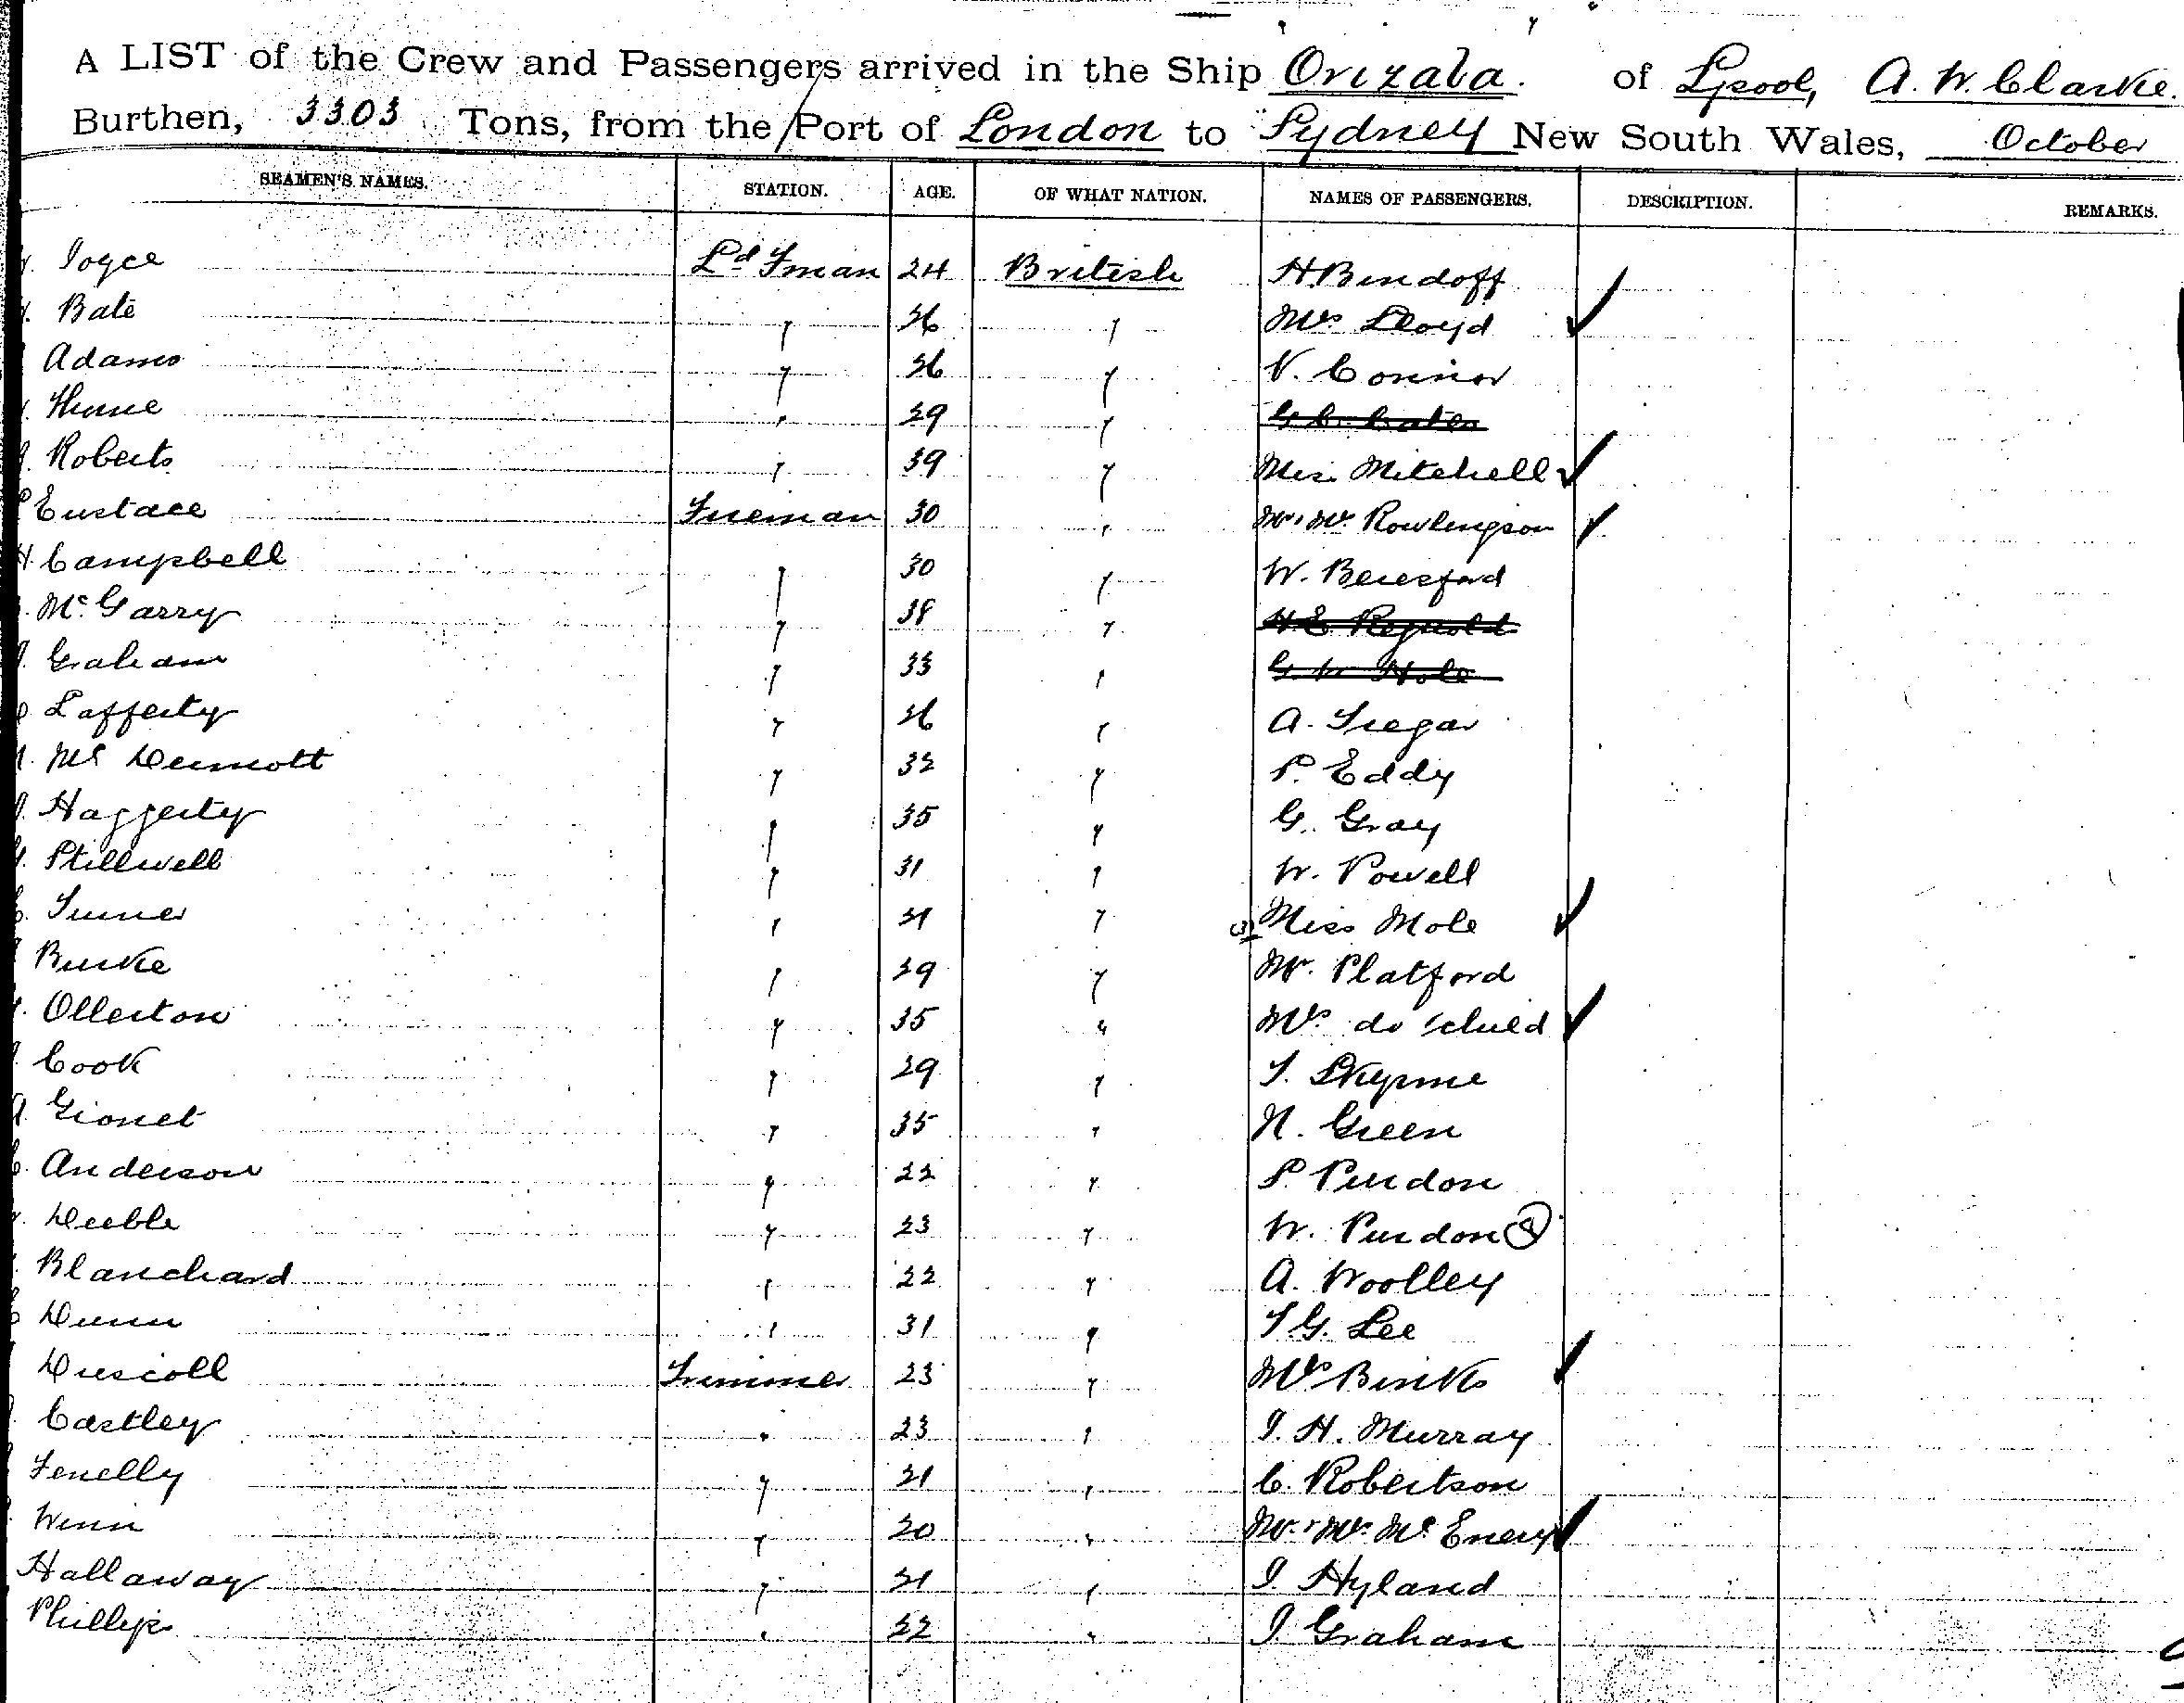 A LIST of the Crew and Passengers arrived in the Ship Orizaba. of Lpool, A. W. Clarke.
Burthen, 3303 Tons, from the Port of London to Sydney New South Wales, October
SEAMEN'S NAMES. STATION. AGE. OF WHAT NATION. NAMES OF PASSENGERS. DESCRIPTION. REMARKS.
Joyce Ld Fman 24 British H Bendoff
Bate 26 " " Mrs Lloyd
Adams " 26 " V. Connor
Hume " 29 "
Roberts " 39 " Miss Mitchell
P Eustace Fireman 30 " Mr. Mrs. Rowlingson
H. Campbell " 30 " W. Beresford
McGarry " 38 " H. E. Reynolds
J. Graham " 33 " Hole
Lafferty " 26 " A. Tregar
McDermott " 32 " P. Eddy
J. Haggerty " 35 " G. Gray
Stillwell " 31 " W. Powell
Turner " " Miss Mole
Burke " 29 " Mr. Platford
Ollerton " 35 " Mrs. do child
Cook " 29 " T. Skyrme
A. Gionet " 35 " N. Green
C. Anderson " 22 " P. Purdon
Deeble " 23 " W. Purdon
Blanchard " 22 " A. Woolley
Dunn " 31 " T. G. Lee
Driscoll Trimmer 23 " Mrs Binks
Castley " 23 " J. H. Murray
Fenelly " 21 " C. Robertson
Winn " 20 " Mr. Mrs. McEnery
Hallaway " 21 " J. Hyland
Phillips " 22 " J. Graham